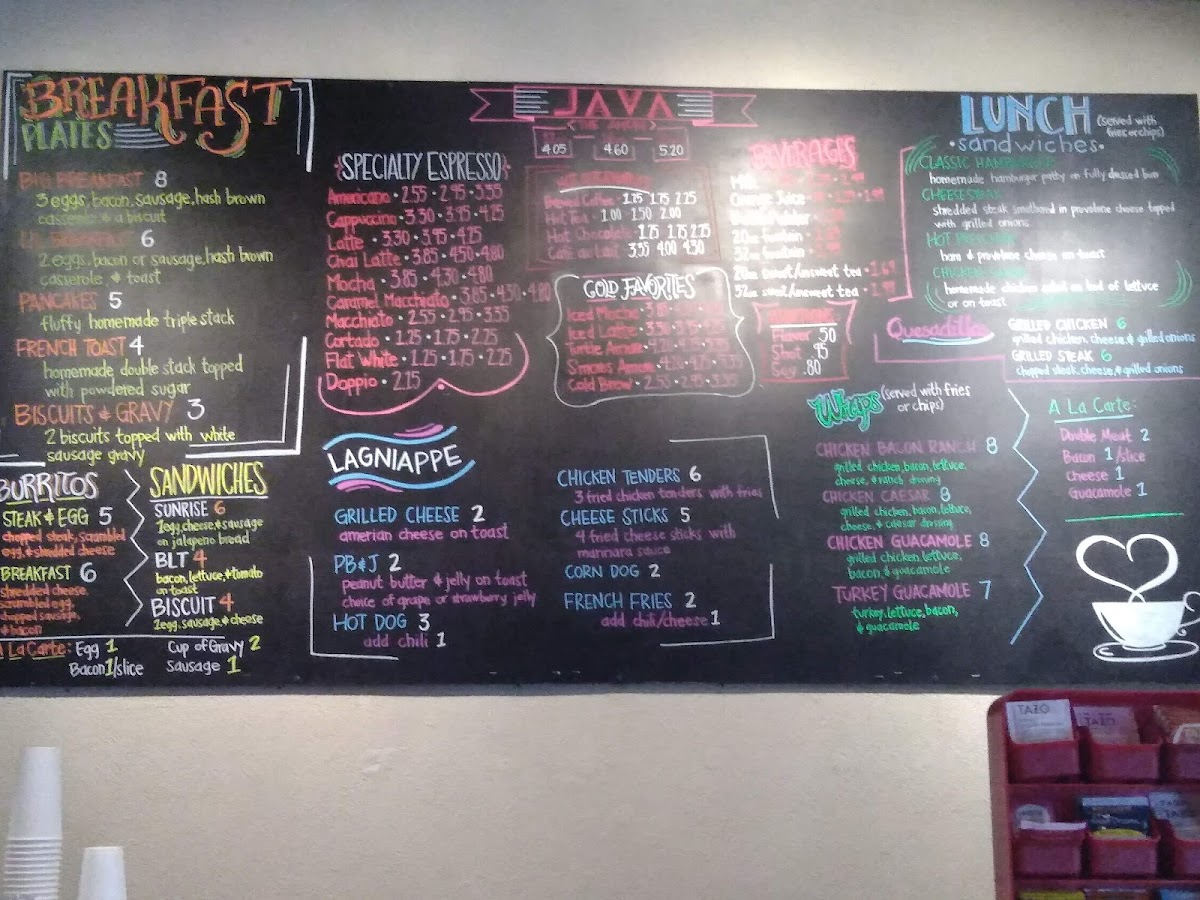 BREAKFAST
PLATES
BIG BREAKFAST 8
3 eggs, bacon, sausage, hash brown
casserole & a biscuit
LIL BREAKFAST 6
2 eggs, bacon or sausage, hash brown
casserole, & toast
PANCAKES 5
fluffy homemade triple stack
FRENCH TOAST 4
homemade double stack topped
with powdered sugar
BISCUITS & GRAVY 3
2 biscuits topped with white
sausage gravy
BURRITOS
STEAK & EGG 5
chopped steak, scrambled
egg, & shredded cheese
BREAKFAST 6
shredded cheese,
scrambled egg,
chopped sausage,
& bacon
SANDWICHES
SUNRISE 6
1 egg, cheese, & sausage
on jalapeno bread
BLT 4
bacon, lettuce, & tomato
on toast
BISCUIT 4
1 egg, sausage, & cheese
A La Carte: Egg 1
Bacon 1/slice
Cup of Gravy 2
Sausage 1
JAVA
4.05 4.60 5.20
SPECIALTY ESPRESSO
Americano • 2.55 • 2.95 • 3.55
Cappuccino • 3.30 • 3.95 • 4.25
Latte • 3.30 • 3.95 • 4.25
Chai Latte • 3.85 • 4.50 • 4.80
Mocha • 3.85 • 4.30 • 4.80
Caramel Macchiato • 3.85 • 4.30 • 4.80
Macchiato • 2.55 • 2.95 • 3.55
Cortado • 1.25 • 1.75 • 2.25
Flat White • 1.25 • 1.75 • 2.25
Doppio • 2.15
Brewed Coffee 1.25 1.75 2.25
Hot Tea • 1.00 1.50 2.00
Hot Chocolate 1.25 1.75 2.25
Café au Lait 3.55 4.00 4.30
COLD FAVORITES
Iced Mocha
Iced Latte
Turtle
S'mores
Cold Brew
BEVERAGES
Milk
Orange Juice
20oz fountain
32oz fountain
20oz sweet/unsweet tea • 1.69
32oz sweet/unsweet tea
Flavor .50
Shot .95
Soy .80
LAGNIAPPE
GRILLED CHEESE 2
amerian cheese on toast
PB&J 2
peanut butter & jelly on toast
choice of grape or strawberry jelly
HOT DOG 3
add chili 1
CHICKEN TENDERS 6
3 fried chicken tenders with fries
CHEESE STICKS 5
4 fried cheese sticks with
marinara sauce
CORN DOG 2
FRENCH FRIES 2
add chili/cheese 1
LUNCH
(served with
fries or chips)
• sandwiches •
CLASSIC HAMBURGER
homemade hamburger patty on fully dressed bun
CHEESESTEAK
shredded steak smothered in provolone cheese topped
with grilled onions
HOT
ham & provolone cheese on toast
CHICKEN SALAD
homemade chicken salad on bed of lettuce
or on toast
Quesadillas
GRILLED CHICKEN 6
grilled chicken, cheese, & grilled onions
GRILLED STEAK 6
chopped steak, cheese, & grilled onions
Wraps (served with fries
or chips)
CHICKEN BACON RANCH 8
grilled chicken, bacon, lettuce,
cheese, & ranch dressing
CHICKEN CAESAR 8
grilled chicken, bacon, lettuce,
cheese, & caesar dressing
CHICKEN GUACAMOLE 8
grilled chicken, lettuce,
bacon & guacamole
TURKEY GUACAMOLE 7
turkey, lettuce, bacon,
& guacamole
A La Carte:
Double Meat 2
Bacon 1/slice
Cheese 1
Guacamole 1
TAZO
TAZO